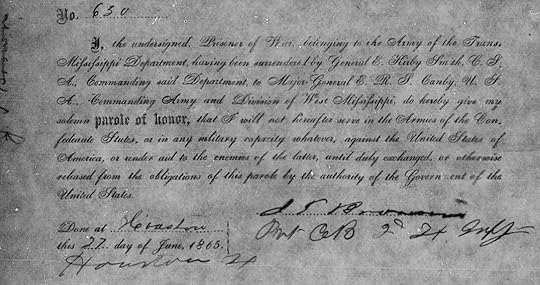 No. 650
I, the undersigned, Prisoner of War, belonging to the Army of the Trans-
Mississippi Department, having been surrendered by General E. Kirby Smith, C. S.
A., Commanding said Department, to Major General E. R. S. Canby, U. S.
A., Commanding Army and Division of West Mississippi, do hereby give my
solemn parole of honor, that I will not hereafter serve in the Armies of the Con-
federate States, or in any military capacity whatever, against the United States of
America, or render aid to the enemies of the latter, until duly exchanged, or otherwise
released from the obligations of this parole by the authority of the Government of the
United States.
Done at Houston
this 27 day of June, 1865.
Houston
Pvt Co B 2d Inf